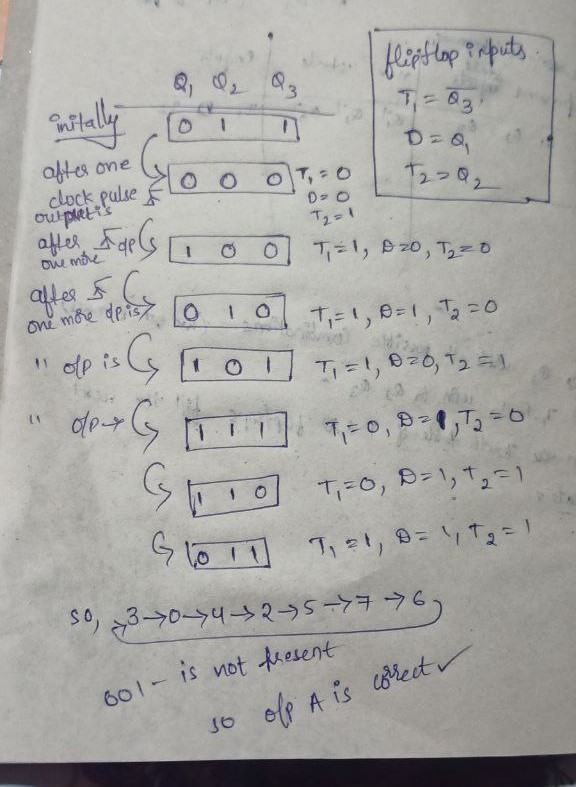 flipflop inputs
T₁ = Q̅₃
D = Q₁
T₂ = Q₂
Q₁ Q₂ Q₃
initally 0 1 1
after one clock pulse output is 0 0 0 T₁ = 0 D = 0 T₂ = 1
after one more o/p 1 0 0 T₁ = 1, D = 0, T₂ = 0
after one more o/p is 0 1 0 T₁ = 1, D = 1, T₂ = 0
" o/p is 1 0 1 T₁ = 1, D = 0, T₂ = 1
" o/p → 1 1 1 T₁ = 0, D = 1, T₂ = 0
1 1 0 T₁ = 0, D = 1, T₂ = 1
0 1 1 T₁ = 1, D = 1, T₂ = 1
so, 3→0→4→2→5→7→6
001 - is not present
so o/p A is correct ✓